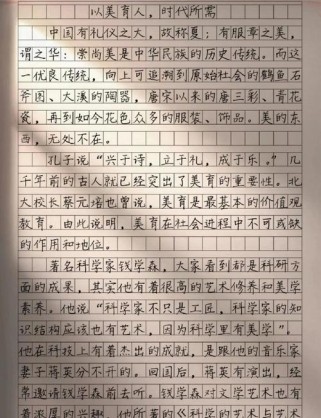 以美育人，时代所需
中国有礼仪之大，故称夏；有服章之美，
谓之华；崇尚美是中华民族的历史传统。而这
一优良传统，向上可追溯到原始社会的鹳鱼石
斧图、大溪的陶器，唐宋以来的唐三彩、青花
瓷，再到如今花色众多的服装、饰品。美的东
西，无处不在。
孔子说“兴于诗，立于礼，成于乐。”几
千年前的古人就已经突出了美育的重要性。北
大校长蔡元培也曾说，美育是最基本的价值观
教育。由此说明，美育在社会进程中不可或缺
的作用和地位。
著名科学家钱学森，大家看到都是科研方
面的成果，其实他有着很高的艺术修养和美学
素养。他说“科学家不只是工匠，科学家的知
识结构应该也有艺术，因为科学里有美学”。
他在科技上有着杰出的成就，是跟他的音乐家
妻子蒋英分不开的。回国后，蒋英有演出，经
常邀请钱学森前去听。钱学森对文学艺术也有
着浓厚的兴趣，他所著的《科学的艺术与艺术